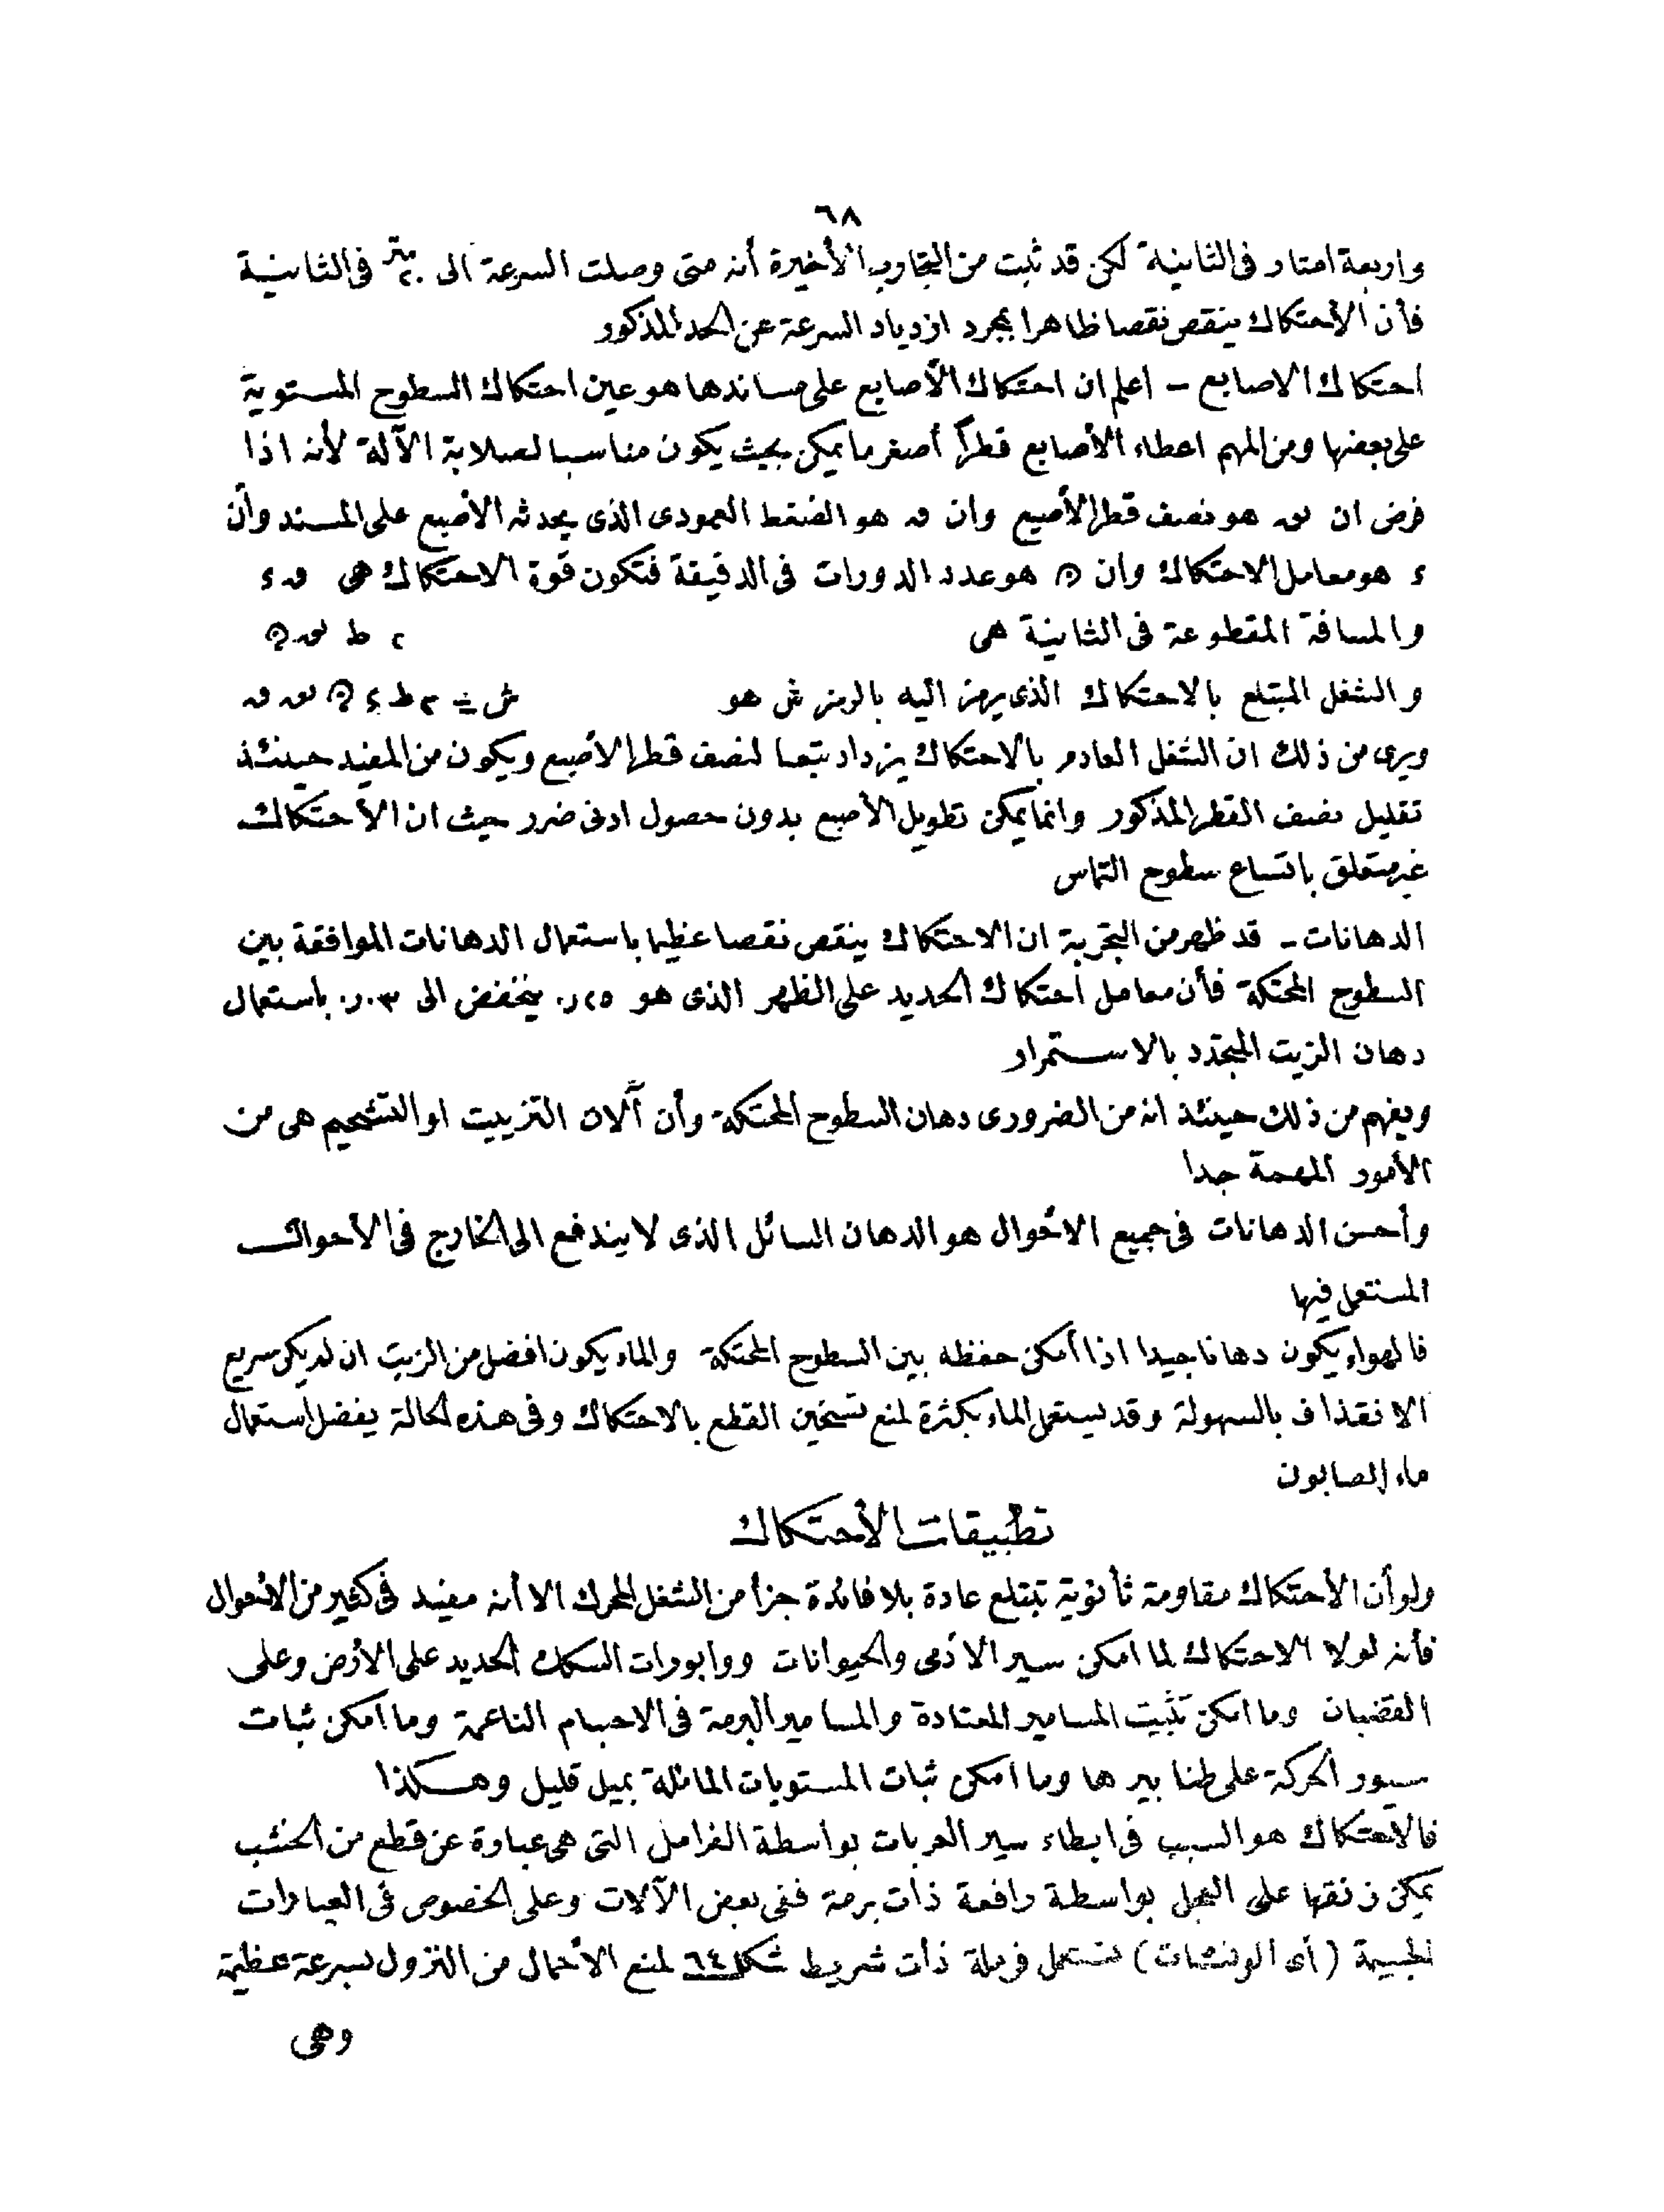 ٦٨
واربعة امتار فى الثانية لكن قد ثبت من التجارب الأخيرة أنه متى وصلت السرعة الى ٢٠ متر فى الثانية
فأن الأحتكاك ينقص نقصا ظاهرا بمجرد ازدياد السرعة عن الحد المذكور
احتكاك الاصابع - اعلم ان احتكاك الأصابع على مساندها هو عين احتكاك السطوح المستوية
على بعضها ومن المهم اعطاء الأصابع قطرا أصغر ما يمكن بحيث يكون مناسبا لصلابة الآلة لأنه اذا
فرض ان نق هو نصف قطر الأصبع وان ق هو الضغط العمودى الذى يحدثه الأصبع على المسند وأن
ء هو معامل الاحتكاك وان ﻥ هو عدد الدورات فى الدقيقة فتكون قوة الاحتكاك هى ق ء
والمسافة المقطوعة فى الثانية هى ٢ ط نق ﻥ
والشغل المبتلع بالاحتكاك الذى يرمز اليه بالرمز ش هو ش = ٢ ط ء ﻥ نق ق
ويرى من ذلك ان الشغل العادم بالاحتكاك يزداد تبعا لنصف قطر الأصبع ويكون من المفيد حينئذ
تقليل نصف القطر المذكور وانما يمكن تطويل الأصبع بدون حصول ادنى ضرر حيث ان الأحتكاك
غير متعلق باتساع سطوح التماس
الدهانات - قد ظهر من التجربة ان الاحتكاك ينقص نقصا عظيما باستعمال الدهانات الموافقة بين
السطوح المحتكة فأن معامل احتكاك الحديد على الظهر الذى هو ٢٥ر٠ ينخفض الى ٠٣ر٠ باستعمال
دهان الزيت المتجدد بالاستمرار
ويفهم من ذلك حينئذ انه من الضرورى دهان السطوح المحتكة وأن آلات التزييت او التشحيم هى من
الأمور المهمة جدا
وأحسن الدهانات فى جميع الأحوال هو الدهان السائل الذى لا يندفع الى الخارج فى الأحوال
المستعمل فيها
فالهواء يكون دهانا جيدا اذا أمكن حفظه بين السطوح المحتكة والماء يكون افضل من الزيت ان لم يكن سريع
الانقذاف بالسهولة وقد يستعمل الماء بكثرة لمنع تسخين القطع بالاحتكاك وفى هذه الحالة يفضل استعمال
ماء الصابون
تطبيقات الأحتكاك
ولو أن الأحتكاك مقاومة ثأنوية تبتلع عادة بلا فائدة جزأ من الشغل المحرك الا أنه مفيد فى كثير من الأحوال
فأنه لولا الاحتكاك لما امكن سير الأدمى والحيوانات ووابورات السكك الحديد على الأرض وعلى
القضبان وما امكن تثبيت المسامير المعتادة والمسامير البرمة فى الاجسام الناعمة وما امكن ثبات
سيور الحركة على طنابيرها وما امكن ثبات المستويات المائلة بميل قليل وهكذا
فالأحتكاك هو السبب فى ابطاء سير العربات بواسطة الفرامل التى هى عبارة عن قطع من الخشب
يمكن زنقها على العجل بواسطة رافعة ذات برمة ففى بعض الآلات وعلى الخصوص فى العيارات
الجسيمة (أى الونشات) تستعمل فرملة ذات شريط شكل ٦٤ لمنع الأحمال من النزول بسرعة عظيمة
وهى